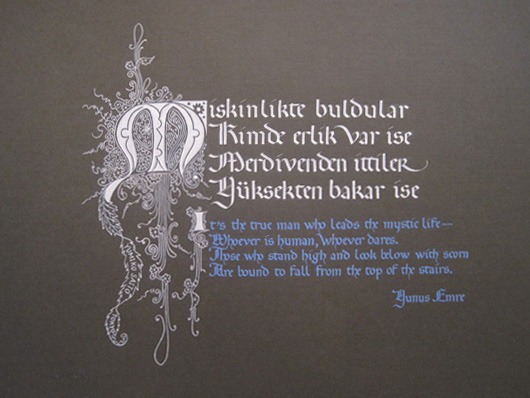 Miskinlikte buldular
Kimde erlik var ise
Merdivenden ittiler
Yüksekten bakar ise
It's the true man who leads the mystic life—
Whoever is human, whoever dares.
Those who stand high and look below with scorn
Are bound to fall from the top of the stairs.
Yunus Emre